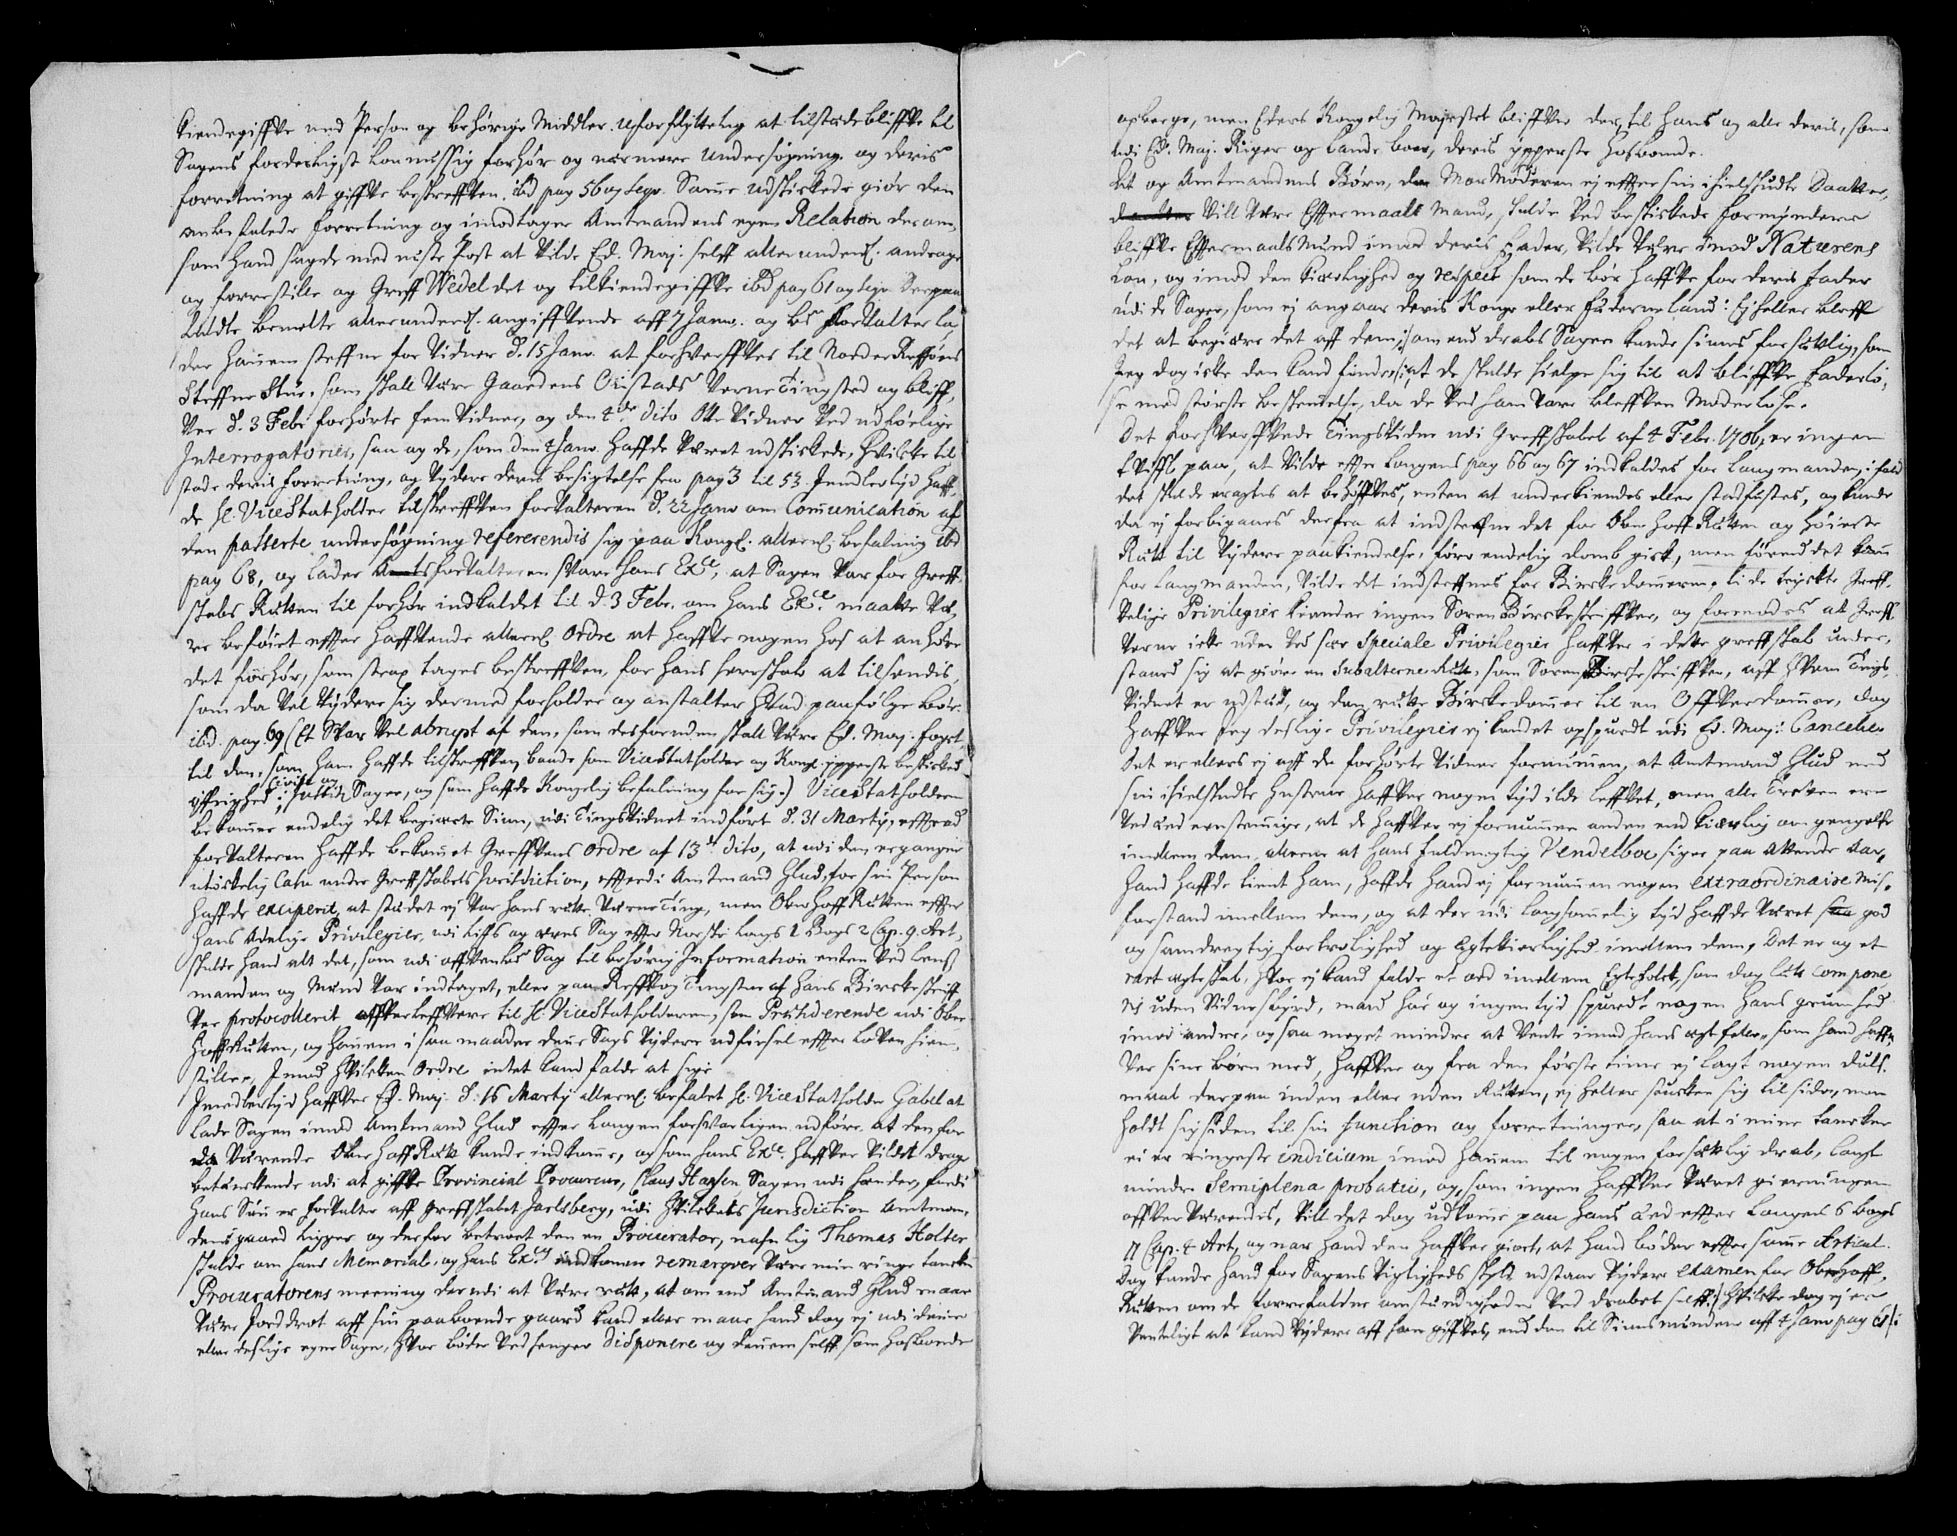 kiendegiffve med Person og behørige Middler uforfløttelig at tilstædeblifve til
Sagens forderligst lonmessig forhør og nærmere undersøgning og deris
forretning at giffve beskreffven. ibd pag 56 og seqv. Samme udskickede giør den
anbefalede forretning og imodtager Amtmandens egen Relation der om,
som hand sagde med neste Post at vilde Ed. Maj: selff allerunderd. andrage
og forrestille og Greff Wedel det og tilkiendegiffve ibd pag 61 og seqv
bemelte allerunderd. angiffvende aff 7 Janv. og forvalter la
der hannem steffne for Vidner d. 15 Janv. at forhverffves til Norder
Steffne Stue, som skall være Gaardens Værne Tingsted og bliff,
ver d. 3 Febr forhørte fem Vidner, og den 4de dito otte Vidner ved udførlige
Interrogatorier, saa og de, som den 4 Janv. haffde været udskickede, hvilcke til
stode deris forretning, og videre deris besigtelse fra pag 3 til 53. Imidlertid haff,
de H. ViceStatholder tilskreffven forvalteren d. 22 Janv om Communication af
den passerte undersøgning refererendis sig paa Kongl. allern. befaling ibd
pag 68, og lader forvalteren svare hans Exce, at Sagen var for Greff,
skabs Retten til forhør indkaldet til d. 3 Febr. om hans Exce. maatte væ,
re beføiet effter haffvende allern. Ordre at haffve nogen hos at anhøre
det forhør, som strax tages beskreffven, for hans herskab at tilsendis,
som da vel videre sig dermed forholder og anstalter hvad paafølge bør.
ibd. pag. 69 (Et Svar vel abrupt af den, som desforuden skall være Ed. Maj. foget,
til den, som ham haffde tilskreffven, baade som ViceStatholder og Kongl. ypperste beskicked
øffrighed i Civile og Justitz Sager, og som haffde Kongelig befalning for sig.) ViceStatholderen
bekommer endelig det begierte Svar, udi Tingsvidnet indført d. 31 Martij, effter at
forvalteren haffde bekommet Greffvens Ordre af 13de dito, at udi den ergangne
ulyckelig Casu under Greffskabets Jurisdiction, effterdi Amtmand Glud for sin Person
haffde exciperit, at stedet ej var hans rette Værne Ting, men OberHoffRetten effter
hans Adelige Privilegier, udi Liffs og æres Sag effter Norske Lougs 1 Bogs 2 Cap. 9. Art,
skulde hand alt det, som udi aff Sag til behørig Information enten ved Lens,
manden og Mænd var indtaget, eller paa Tingstue af hans Birckeskriff
ver protocollerit offverleffvere til H. ViceStatholderen, som Præsiderende udi Ober
HoffRetten, og hannem i saa maader denne Sags videre udførsel effter Loven hiem,
stille, Imod hvilcken Ordre intet kand falde at sige.
Imidlertid haffver Ed. Maj. d: 16 Martij allern. befalet H. ViceStatholder Gabel at
lade Sagen imod Amtmand Glud effter Lougen forsvarligen udføre at den for
da værende OberHoffRett kunde indkomme, og som hans Exce. haffver vildet drage
betenckende udi at giffve Provincial Procureur, Claus Hansen Sagen udi hænder, fordi
hans Søn er forvalter aff Greffskabet Jarlsberg, udi hvilckets Jurisdiction Amtman,
dens gaard ligger og derfor betroet den en Procurator, nafnlig Thomas Holter
skulde om hans Memorial, og hans Exces indkomne remarqver være min ringe tancke
Procuratorens meening der udi at være rett, at om end Amtmand Glud maae
være Jorddrot aff sin paaboende gaard kand eller maae hand dog ej udi denne
eller deslige egne Sager, hvor bøder vedhenger disponere og dømme selff, som hosbonde
afberge, men Eders Kongelig Majestet bliffver der til hans og alle deris, som
udi Ed. Maj. Riger og Lande boer, deris ypperste hosbonde.
At og Amtmandens Børn, Mor Moderen ej effter sin ihielskudte Daatter,
vill være Efftermaals Mand, skulde ved beskickede formyndere
bliffve EfftermaalsMænd imod deris Fader, vilde være imod Naturens
Lov, og imod den kierlighed og respect som de bør haffve for deris Fader
udi de Sager, som ej angaar deris Konge eller Fæderneland: Ey heller bleff
det at begiære det aff dem; om end drabs Sagen kunde sines forsætlig, som
Jeg dog icke den kand finde, at de skulde hielpe sig til at bliffve Faderlø,
se med største beskemelse, da de ved ham vare bleffven Moderløse.
Det forhverffvede Tingsvidne udi Greffskabet af 4 Febr. 1706, er ingen
tviffl paa, at vilde effter Lougens pag 66 og 67 indkaldes for Laugmanden, i fald
det skulde eragtes at behøffves, enten at underkiendes eller stadfæstes, og kunde
da ej forbigaaes derfra at indsteffne det for Ober HoffRetten og Høieste
Rett til videre paakiendelse, førend endelig domb gick, men førend det kom
for Laugmanden, vilde det indsteffnes for Birckedommeren, ti de tryckte Greff,
velige Privilegier kiender ingen Sorenbirckeskriffver, og formodes at Greff
verne icke uden ved sær Speciale Privilegier haffver i dette greffskab under,
staaed sig at giøre en Subalterne Rett, som Sorenbirckeskriffven, aff hvem Tings,
vidnet er udsted, og den rette Birckedommer til en Offverdommer, dog
haffver Jeg deslige Privilegier ej kundet opspurdt udi Ed. Maj: Cancelie.
Det er ellers ej aff de forhørte vidner fornummen, at Amtmand Glud med
sin ihielskudte hustrue haffver nogen tid ilde leffvet, men alle
ved eenstemmige, at de haffver ej fornummen anden end kierlig omgengelse
imellem dem, allene at hans fuldmegtig Vendelboe siger paa Ottende Aar,
hand haffde tient ham, haffde hand ej fornummen nogen extraordinaire Mis,
forstand imellem dem, og at der udi langsommelig tid haffde været god
og samdregtig fortrolighed og Egtekierlighed imellem dem, det er og et
rart egteskab, hvor ej kand falde et ord imellem Egtefolck, som dog lett compone,
ris uden Vidnesbyrd, mand har og ingen tid spurdt nogen hans grumhed
imod andre, og saa meget mindre at vente imod hans egtefelle, som hand haff,
ver sine børn med, haffver og fra den første time ej lagt nogen duls,
maal derpaa inden eller uden Retten, ej heller stucken sig til side, men
holdt sig siden til sin function og forretninger, saa at i mine tancker
ei er ringeste indicium imod hannem til nogen forsetlig drab, langt
mindre Semiplena probatio, og, som ingen haffver været gierningen
offverværendis, vill det dog udkomme paa hans Eed effter Lougens 6 bogs
11 Cap. 4 Art, og naar hand den haffver giort, at hand bøder effter samme Articul.
Dog kunde hand for Sagens vigtigheds skyld udstaae videre examen for OberHoff,
Retten om de forrefaldne omstendigheder ved drabet selff,) hvilcke dog ej er
venteligt at kand videre aff ham giffves, end den til Siunsmendene aff 4 Janv pag 61